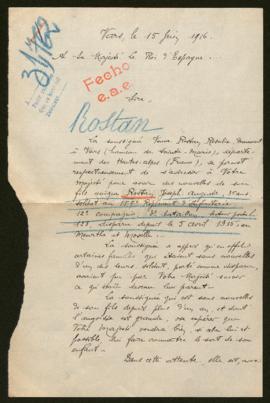 Vars, le 15 Juin 1916.
A Sa Majesté Le Roi d'Espagne.
Fecho
e.a.e.
Sire,
Rostan
La soussignée Veuve Rostan Rosalie, demeurant
à Vars (hameau de Sainte-Marie), département
des Hautes-Alpes (France), se permet
respectueusement de s'adresser à Votre
Majesté pour avoir des nouvelles de son
fils unique Rostan Joseph Auguste,
soldat au Régiment d'Infanterie
12e compagnie, bataillon, secteur postal
disparu depuis le 5 avril 1915 en
Meurthe et Moselle.
La soussignée a appris qu'en effet
certaines familles qui étaient sans nouvelles
d'un des leurs, soldat, porté comme disparu,
avaient pu par Votre Majesté savoir
ce qu'était devenu leur parent.
La soussignée qui est sans nouvelles
de son fils depuis plus d'un an, et dont
l'angoisse est grande, ose espérer que
Votre Majesté voudra bien, si cela lui est
possible, lui faire connaître le sort de son
enfant.
Dans cette attente, elle est, avec